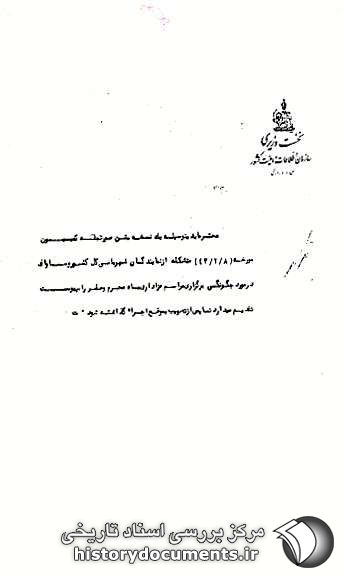 نخست وزیری
سازمان اطلاعات و امنیت کشور
محترماً بدینوسیله یک نسخه متن صورتجلسه کمیسیون
مورخه (۴۴/۲/۸) متشکله از نمایندگان شهربانی کل کشور و ساواک
در مورد چگونگی برگزاری مراسم عزاداری ماه محرم و صفر را بپیوست
تقدیم میدارد تا پس از تصویب بموقع اجراء گذاشته شود
مرکز بررسی اسناد تاریخی
historydocuments.ir